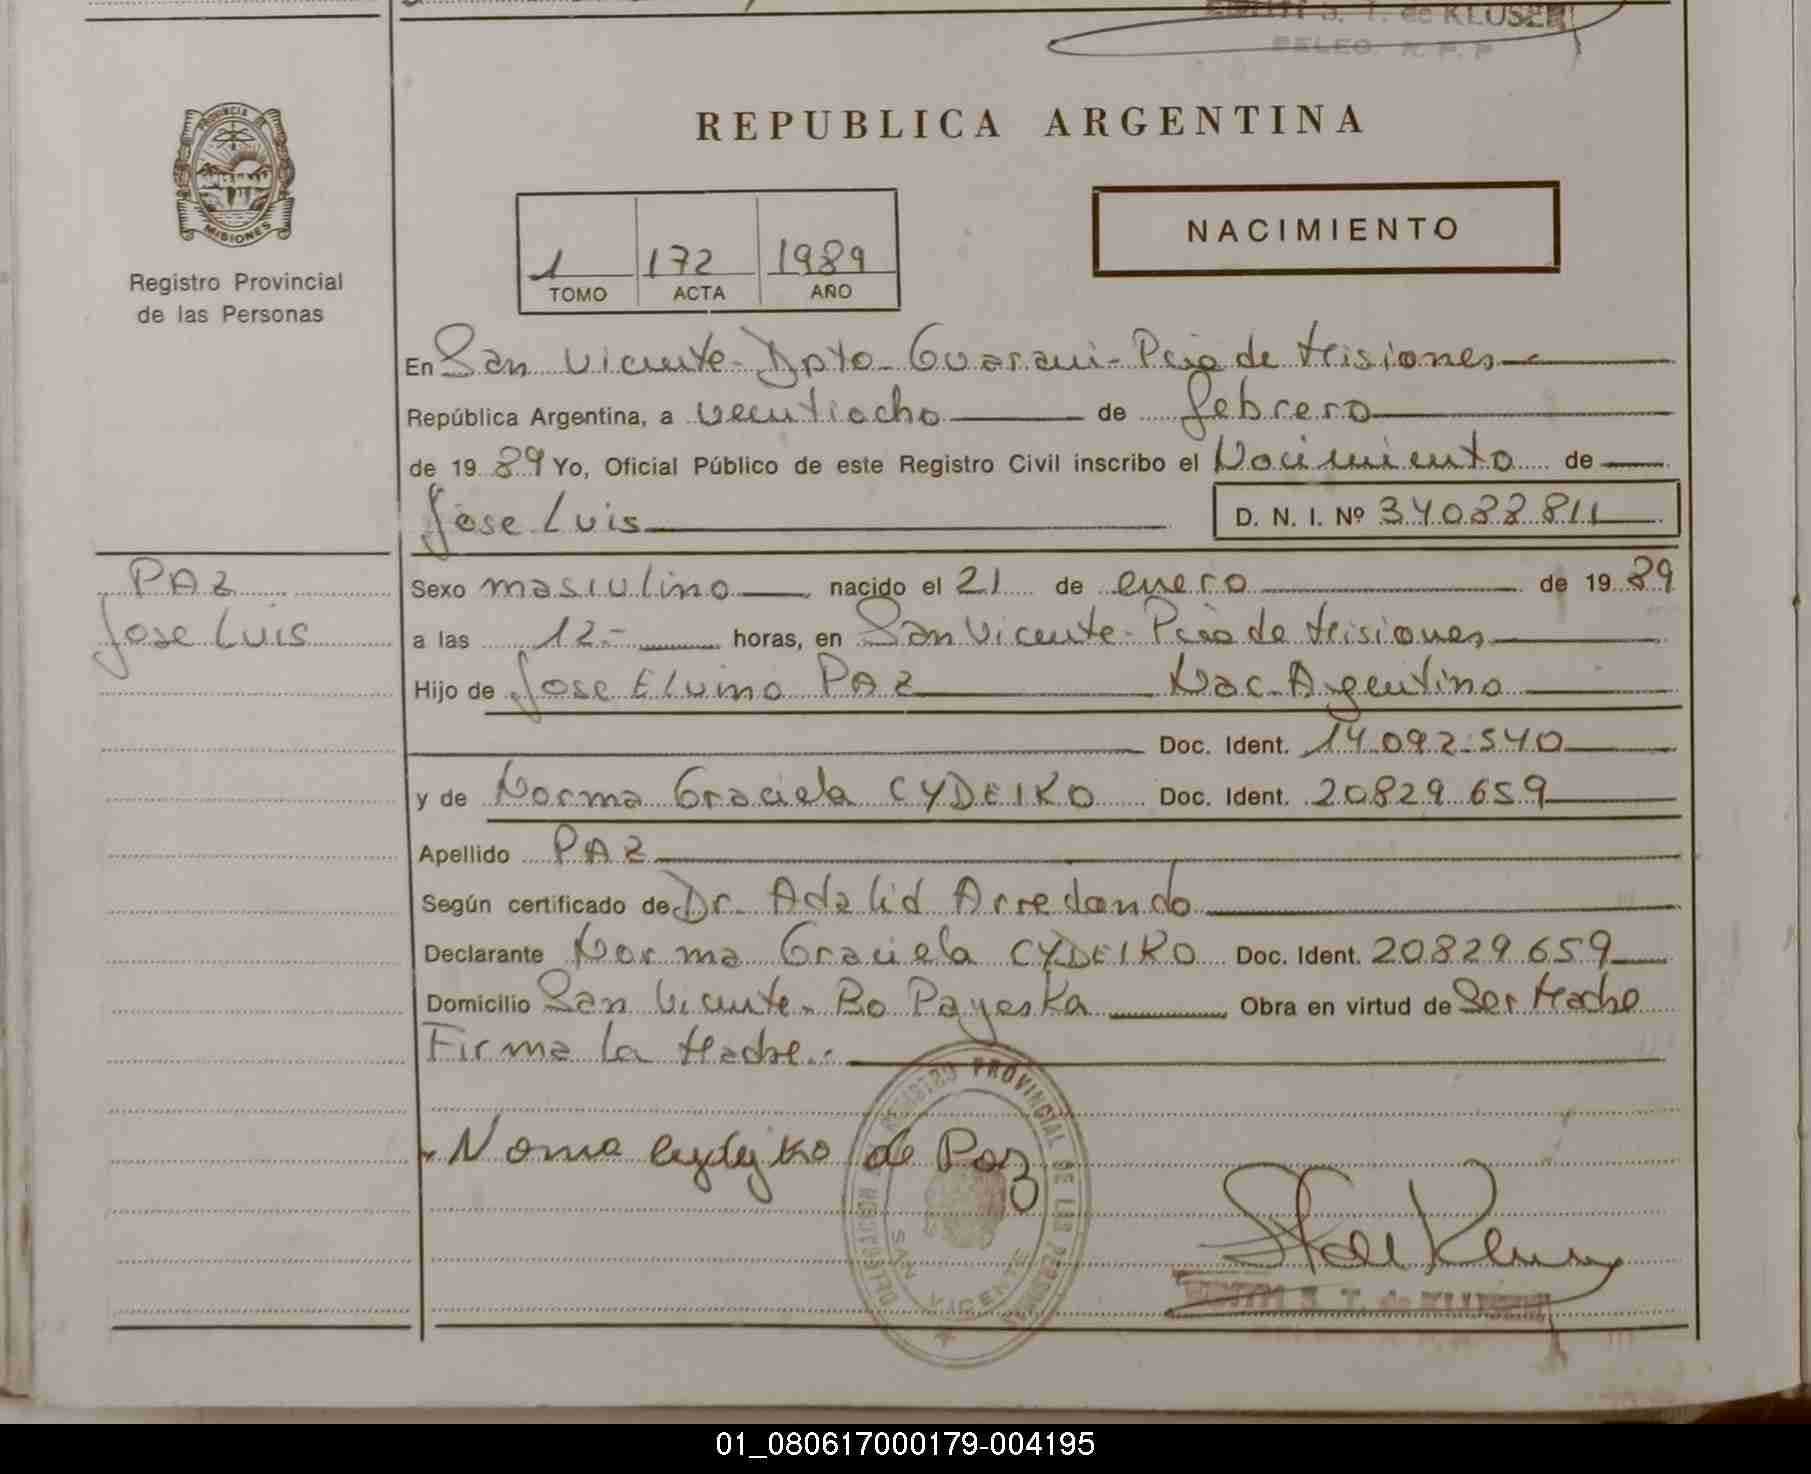 S. T. de KLUSER
DELEG. R. P. P
PROVINCIA DE
MISIONES
Registro Provincial
de las Personas
REPUBLICA ARGENTINA
1 172 1989
TOMO ACTA AÑO
NACIMIENTO
En San Vicente - Dpto - Guarani - Pcia de Misiones
República Argentina, a veintiocho de febrero
de 1989 Yo, Oficial Público de este Registro Civil inscribo el Nacimiento de
Jose Luis D. N. I. Nº 34088811
PAZ
Jose Luis
Sexo masculino nacido el 21 de enero de 1989
a las 12.- horas, en San Vicente - Pcia de Misiones
Hijo de Jose Elvino PAZ Nac. Argentino
Doc. Ident. 14.092.540
y de Norma Graciela CYDEIKO Doc. Ident. 20829659
Apellido PAZ
Según certificado de Dr. Adalid Arredondo
Declarante Norma Graciela CYDEIKO Doc. Ident. 20829659
Domicilio San Vicente - Bo Payeska Obra en virtud de Ser Madre
Firma la Madre.-
Norma cydejko de Paz
DELEGACION REGISTRO PROVINCIAL DE LAS PERSONAS
SAN VICENTE
S. T. de KLUSER
01_080617000179-004195